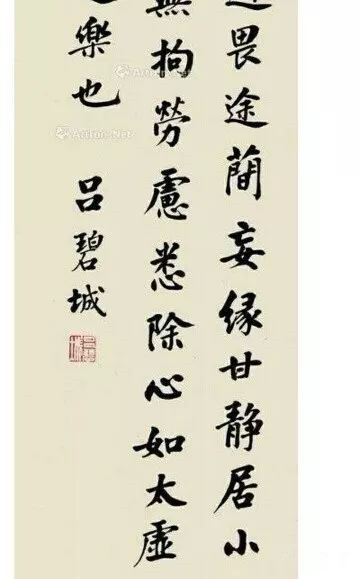 畏途蕳妄缘甘靜居小
無拘勞慮悉除心如太虛
樂也
吕碧城
Artron.Net
Artron.Net